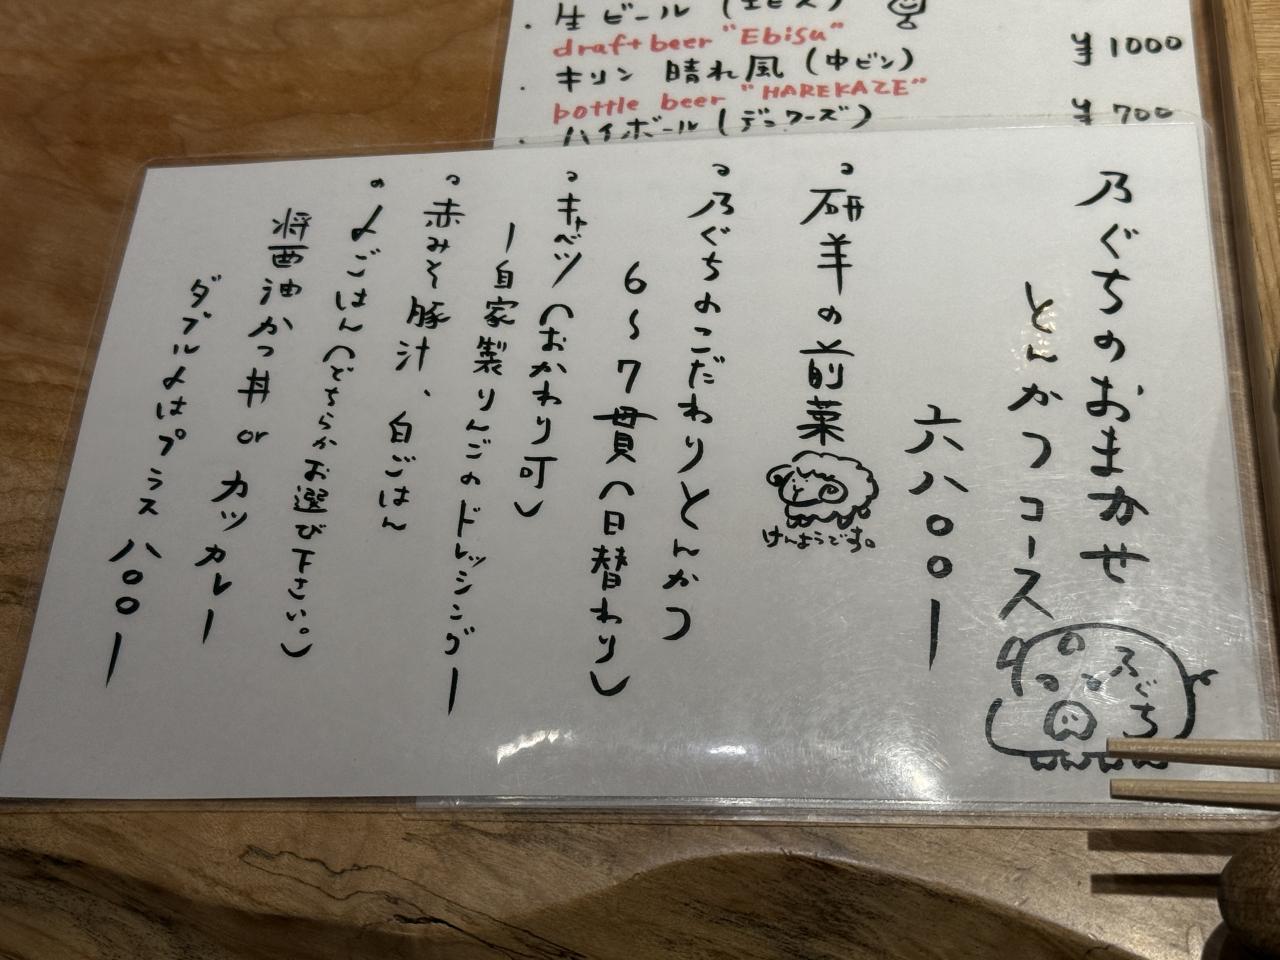 ・生ビール(エビス)
draft beer "Ebisu"
・キリン 晴れ風(中ビン) ¥1000
bottle beer "HAREKAZE"
・ハイボール(デュワーズ) ¥700
乃ぐちのおまかせ
とんかつコース
六八〇〇ー
乃ぐち
・研羊の前菜
けんようです。
・乃ぐちのこだわりとんかつ
6〜7貫(日替わり)
・キャベツ(おかわり可)
ー自家製りんごのドレッシングー
・赤みそ豚汁、白ごはん
・〆ごはん(どちらかお選び下さい。)
醤油かつ丼 or カツカレー
ダブル〆はプラス八〇〇ー